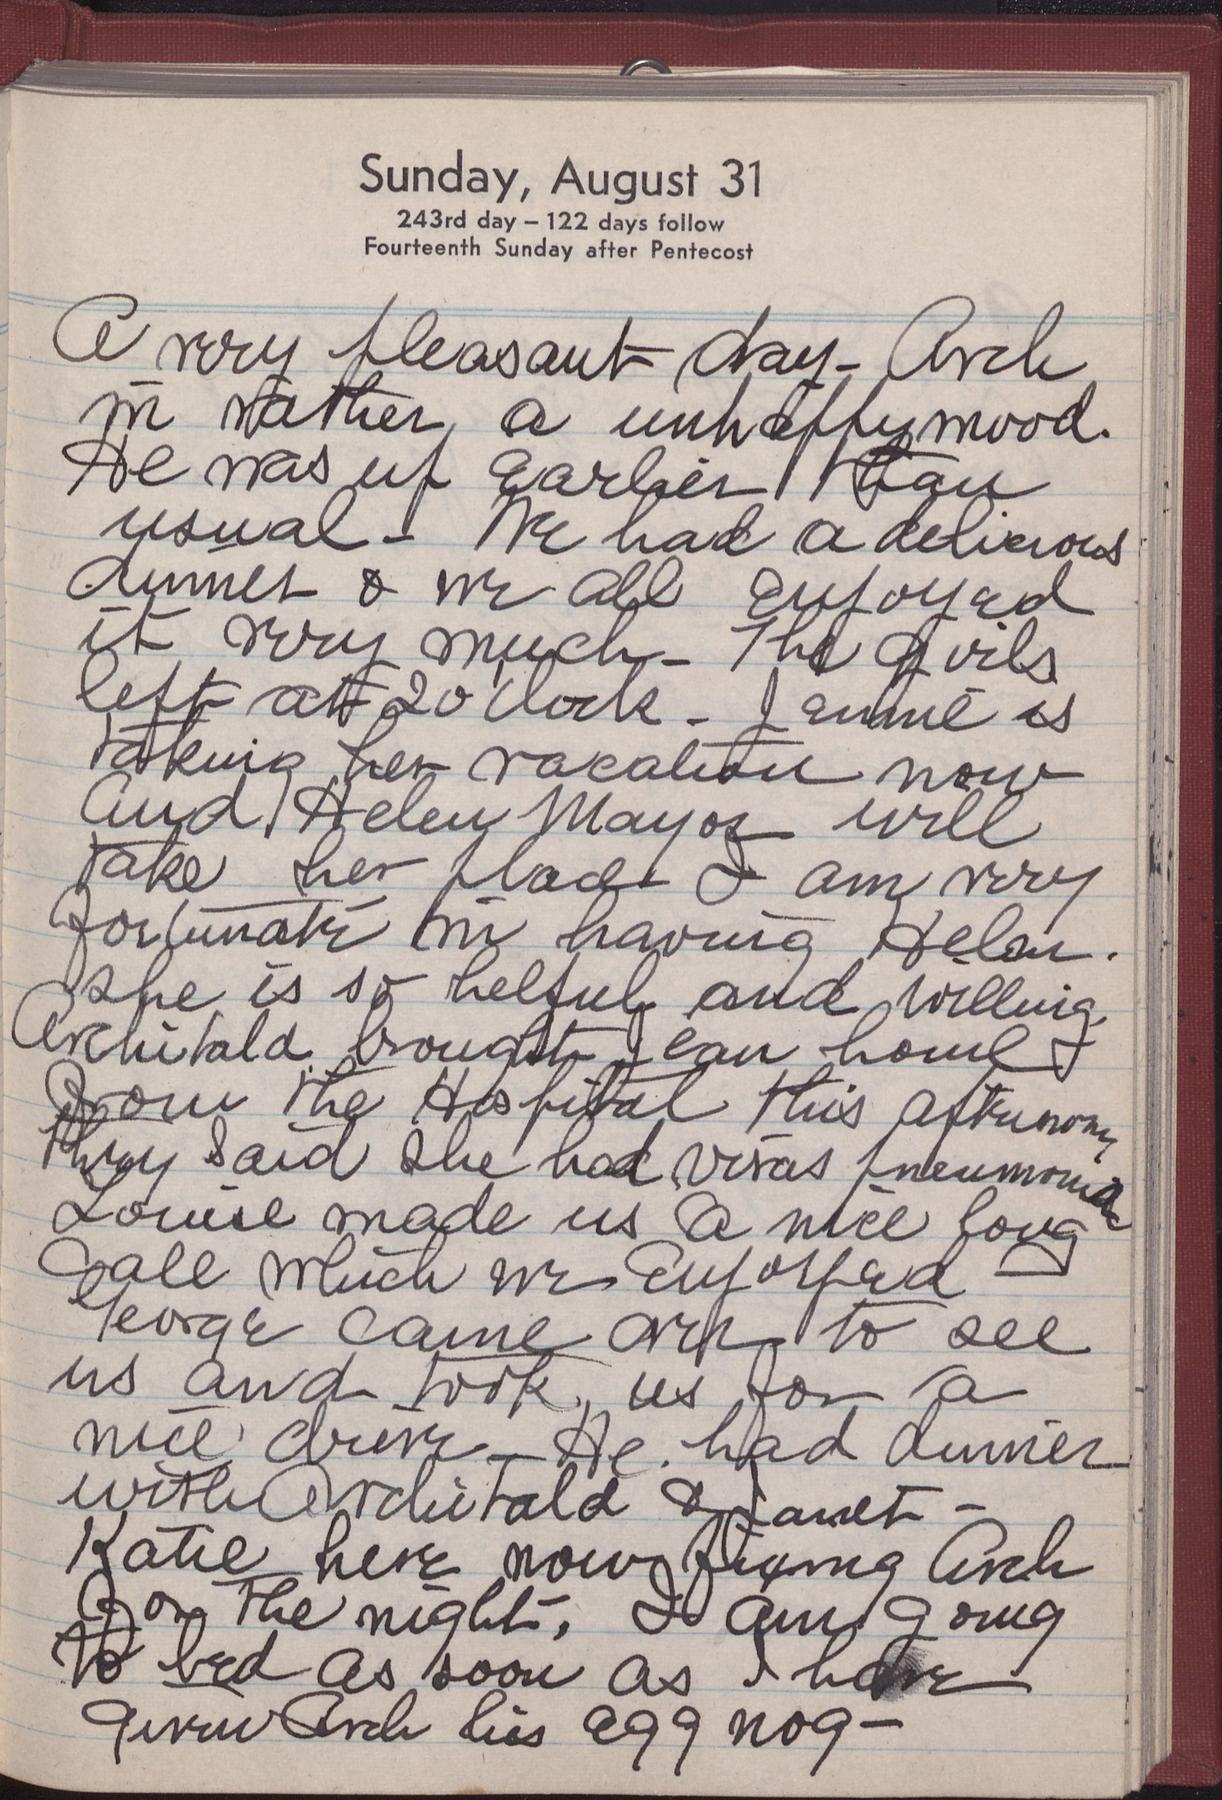 Sunday, August 31
243rd day – 122 days follow
Fourteenth Sunday after Pentecost
A very pleasant day - Arch
in rather a unhappy mood.
He was up earlier than
usual - We had a delicious
dinner & we all enjoyed
it very much - The girls
left at 2 o'clock - Jennie is
taking her vacation now
and Helen Mayor will
take her place I am very
fortunate in having Helen.
She is so helpful and willing
Archibald brought Jean home
from the Hospital this afternoon
They said she had viras pneumonia
Louise made us a nice long
call which we enjoyed
George came over to see
us and took us for a
nice drive - He had dinner
with Archibald & Janet -
Katie here now fixing Arch
for the night. I am going
to bed as soon as I have
given Arch his egg nog -